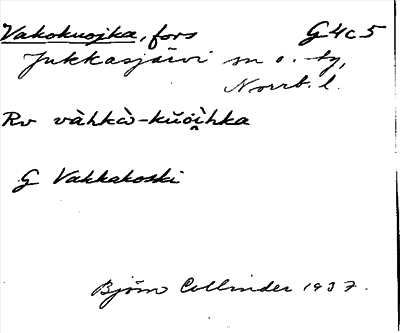 Vakokuojka, fors G4c5
Jukkasjärvi sn o. tg,
Norrb. l.
Rv vàhkὼ-kŭòi̭hka
G Vakkakoski
Björn Collinder 1937.